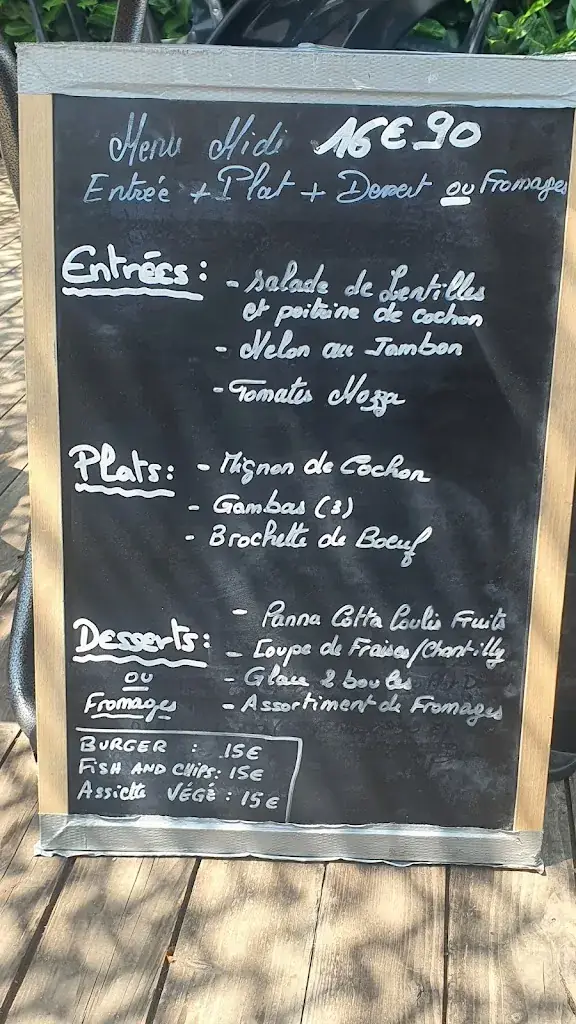 Menu Midi 16€90
Entrée + Plat + Dessert ou Fromages
Entrées :
- Salade de Lentilles
et poitrine de cochon
- Melon au Jambon
- Tomates Mozza
Plats :
- Mignon de Cochon
- Gambas (3)
- Brochette de Boeuf
Desserts :
ou
Fromages
- Panna Cotta Coulis Fruits
- Coupe de Fraises/Chantilly
- Glace 2 boules
- Assortiment de Fromages
BURGER : 15€
FISH AND CHIPS : 15€
Assiette VÉGÉ : 15€